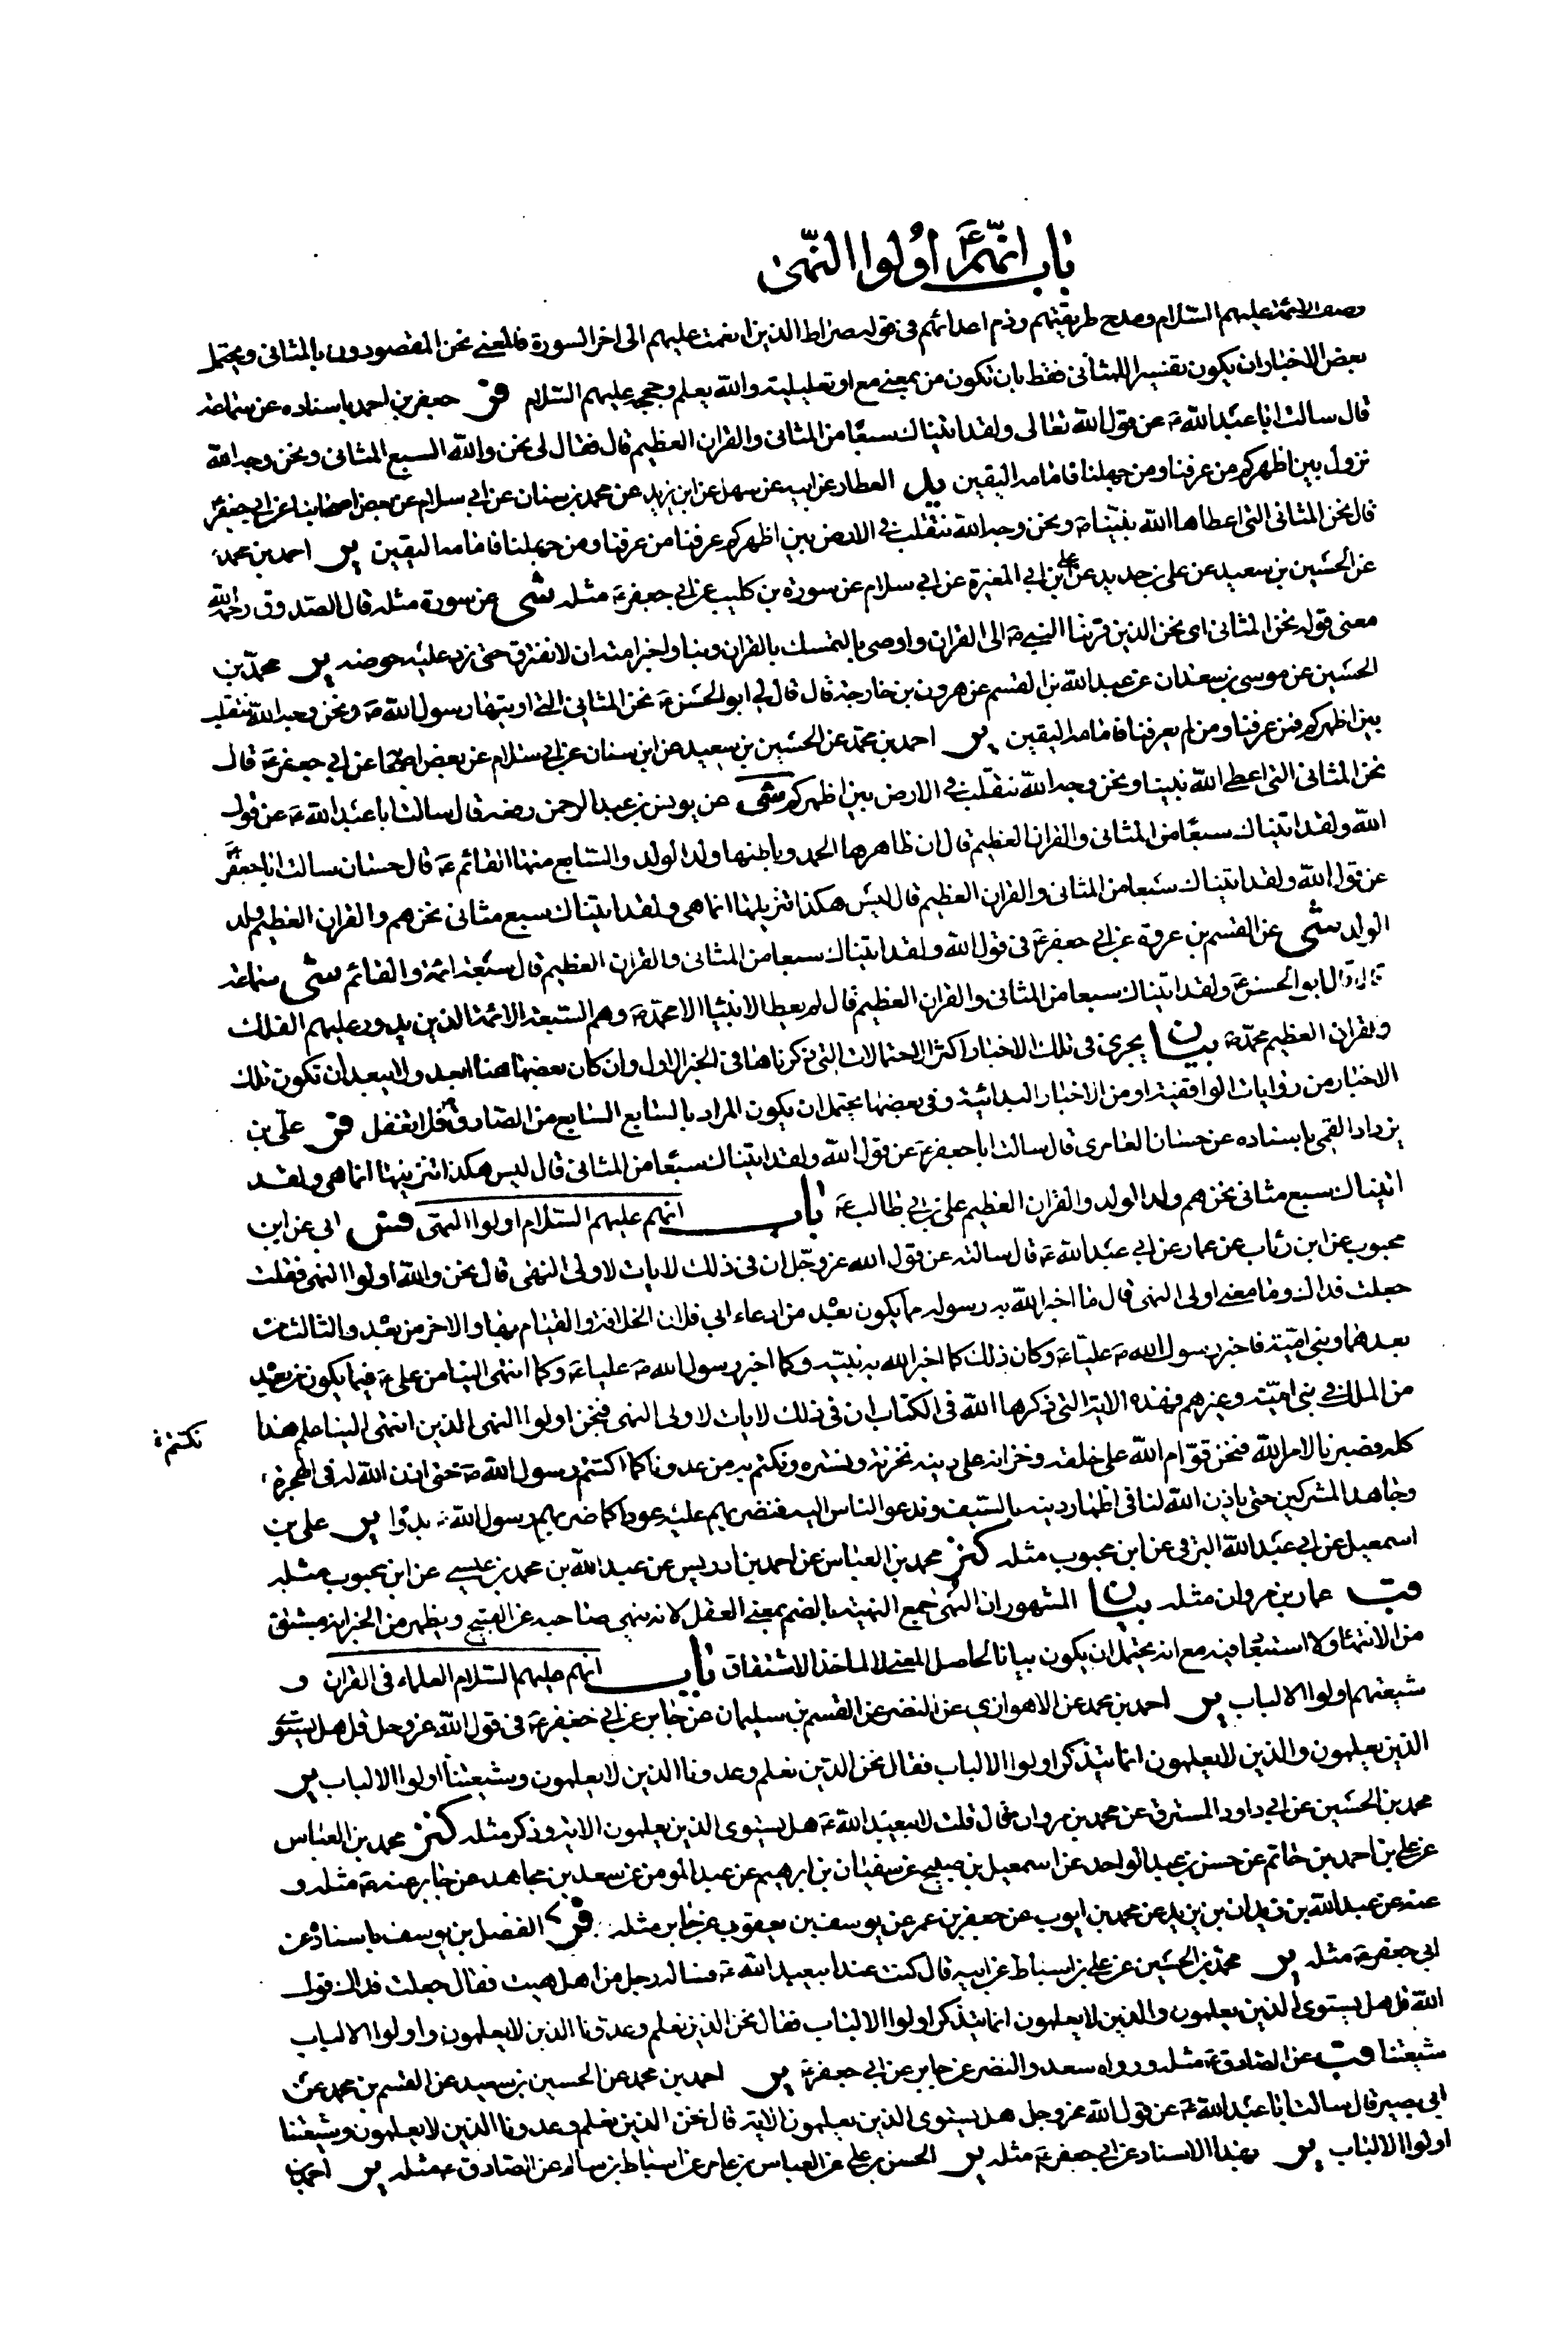 باب انهمؑ اولوا النهى
وصف الائمة عليهم السلام ومدح طريقتهم وذم اعدائهم فى قوله صراط الذين انعمت عليهم الى اخر السورة فالمعنى نحن المقصودون بالمثانى ويحتمل
بعض الاخبار ان يكون تفسيرا للمثانى فقط بان تكون من بمعنى مع او تعليلية والله يعلم وحججه عليهم السلام فر جعفر بن احمد باسناده عن سماعة
قال سالت ابا عبد الله ع عن قول الله تعالى ولقد اتيناك سبعا من المثانى والقران العظيم قال فقال لى نحن والله السبع المثانى ونحن وجه الله
نزول بين اظهركم من عرفنا ومن جهلنا فامامه اليقين يد العطار عن ابيه عن سهل عن ابن يزيد عن محمد بن سنان عن ابى سلام عن بعض اصحابنا عن ابى جعفر ع
قال نحن المثانى التى اعطاها الله نبينا ص ونحن وجه الله نتقلب فى الارض بين اظهركم عرفنا من عرفنا ومن جهلنا فامامه اليقين ير احمد بن محمد
عن الحسين بن سعيد عن على بن حديد عن على بن ابى المغيرة عن ابى سلام عن سورة بن كليب عن ابى جعفر ع مثله شى عن سورة مثله قال الصدوق رحمه الله
معنى قوله نحن المثانى اى نحن الذين قرننا النبى ص الى القران واوصى بالتمسك بالقران وبنا واخبر امته ان لا نفترق حتى نرد عليه حوضه ير محمد بن
الحسين عن موسى بن سعدان عن عبد الله بن القسم عن هرون بن خارجة قال قال لى ابو الحسن ع نحن المثانى التى اوتيها رسول الله ص ونحن وجه الله نتقلب
بين اظهركم فمن عرفنا ومن لم يعرفنا فامامه اليقين ير احمد بن محمد عن الحسين بن سعيد عن ابن سنان عن ابى سلام عن بعض اصحابنا عن ابى جعفر ع قال
نحن المثانى التى اعطى الله نبينا ونحن وجه الله نتقلب فى الارض بين اظهركم شى عن يونس بن عبد الرحمن رفعه قال سالت ابا عبد الله ع عن قول
الله ولقد اتيناك سبعا من المثانى والقران العظيم قال ان ظاهرها الحمد وباطنها ولد الولد والسابع منها القائم ع قال حسان سالت ابا جعفر ع
عن قول الله ولقد اتيناك سبعا من المثانى والقران العظيم قال ليس هكذا تنزيلها انما هى ولقد اتيناك سبع مثانى نحن هم والقران العظيم ولد
الولد شى عن القسم بن عروة عن ابى جعفر ع فى قول الله ولقد اتيناك سبعا من المثانى والقران العظيم قال سبعة ائمة والقائم شى سماعة
قال قال ابو الحسن ع ولقد اتيناك سبعا من المثانى والقران العظيم قال لم يعط الانبياء الا محمد ص وهم السبعة الائمة الذين يدور عليهم الفلك
والقران العظيم محمد ص بيان يجرى فى تلك الاخبار اكثر الاحتمالات التى ذكرناها فى الخبر الاول وان كان بعضها هنا ابعد ولا يبعد ان تكون تلك
الاخبار من روايات الواقفية او من الاخبار البدائية وفى بعضها يحتمل ان يكون المراد بالسابع السابع من الصادق ع فلا تغفل فر على بن
يزداد القمى باسناده عن حسان العامرى قال سالت ابا جعفر ع عن قول الله ولقد اتيناك سبعا من المثانى قال ليس هكذا تنزيلها انما هى ولقد
اتيناك سبع مثانى نحن هم ولد الولد والقران العظيم على بن ابى طالب ع باب انهم عليهم السلام اولوا النهى فس ابى عن ابن
محبوب عن ابن رئاب عن عمار عن ابى عبد الله ع قال سالته عن قول الله عز وجل ان فى ذلك لايات لاولى النهى قال نحن والله اولوا النهى فقلت
جعلت فداك وما معنى اولى النهى قال ما اخبر الله به رسوله مما يكون بعده من ادعاء ابى فلان الخلافة والقيام بها والاخر من بعده والثالث من
بعدهما وبنى امية فاخبر رسول الله ص عليا ع وكان ذلك كما اخبر الله به نبيه وكما اخبر رسول الله ص عليا ع وكما انتهى الينا من على ع فيما يكون من بعده
من الملك فى بنى امية وغيرهم فهذه الاية التى ذكرها الله فى الكتاب ان فى ذلك لايات لاولى النهى فنحن اولوا النهى الذين انتهى الينا علم هذا
كله فصبرنا لامر الله فنحن قوام الله على خلقه وخزانه على دينه نخزنه ونستره ونكتم به من عدونا كما اكتتم رسول الله ص حتى اذن الله له فى الهجرة
نكتتم خ
وجاهد المشركين حتى ياذن الله لنا فى اظهار دينه بالسيف وندعو الناس اليه فنضربهم عليه عودا كما ضربهم رسول الله ص بدوا ير على بن
اسمعيل عن ابى عبد الله البرقى عن ابن محبوب مثله كنز محمد بن العباس عن احمد بن ادريس عن عبد الله بن محمد بن عيسى عن ابن محبوب مثله
قب عمار بن مروان مثله بيان المشهور ان النهى جمع النهية بالضم بمعنى العقل لانه ينهى صاحبه عن القبيح ويظهر من الخبر انه مشتق
من الانتهاء ولا استبعاد فيه مع انه يحتمل ان يكون بيانا لحاصل المعنى لا لماخذ الاشتقاق باب انهم عليهم السلام العلماء فى القران و
شيعتهم اولوا الالباب ير احمد بن محمد عن الاهوازى عن النضر عن القسم بن سليمان عن جابر عن ابى جعفر ع فى قول الله عز وجل قل هل يستوى
الذين يعلمون والذين لا يعلمون انما يتذكر اولوا الالباب فقال نحن الذين نعلم وعدونا الذين لا يعلمون وشيعتنا اولوا الالباب ير
محمد بن الحسين عن ابى داود المسترق عن محمد بن مروان قال قلت لابى عبد الله ع هل يستوى الذين يعلمون الاية وذكر مثله كنز محمد بن العباس
عن على بن احمد بن حاتم عن حسن بن عبد الواحد عن اسمعيل بن صبيح عن سفيان بن ابرهيم عن عبد المومن عن سعد بن مجاهد عن جابر عنه ع مثله و
عنه عن عبد الله بن زيدان بن يزيد عن محمد بن ايوب عن جعفر بن عمر عن يوسف بن يعقوب عن جابر مثله فر الفضل بن يوسف باسناده عن
ابى جعفر ع مثله ير محمد بن الحسين عن على بن اسباط عن ابيه قال كنت عند ابى عبد الله ع فساله رجل من اهل هيت فقال جعلت فداك قول
الله قل هل يستوى الذين يعلمون والذين لا يعلمون انما يتذكر اولوا الالباب فقال نحن الذين نعلم وعدونا الذين لا يعلمون واولوا الالباب
شيعتنا قب عن الصادق ع مثله ورواه سعد والنضر عن جابر عن ابى جعفر ع ير احمد بن محمد عن الحسين بن سعيد عن القسم بن محمد عن
ابى بصير قال سالت ابا عبد الله ع عن قول الله عز وجل هل يستوى الذين يعلمون الاية قال نحن الذين نعلم وعدونا الذين لا يعلمون وشيعتنا
اولوا الالباب ير بهذا الاسناد عن ابى جعفر ع مثله ير الحسن بن على عن العباس بن عامر عن اسباط بن سالم عن الصادق ع مثله ير احمد بن